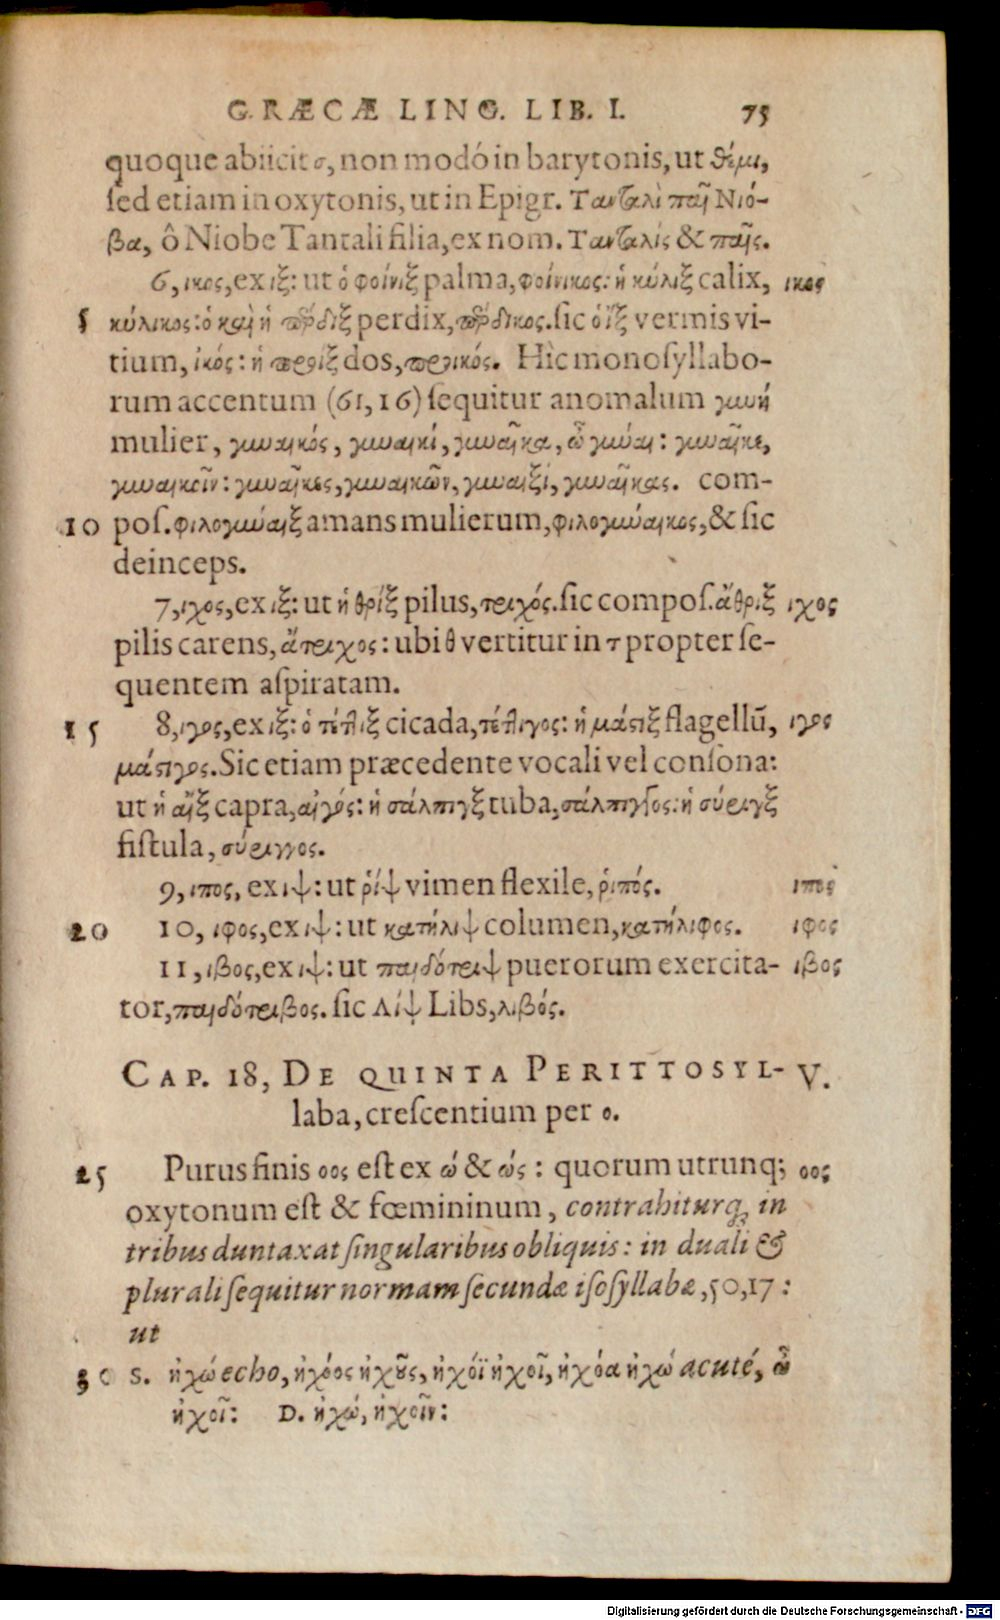 GRÆCÆ LING. LIB. I. 75
quoque abiicit σ, non modó in barytonis, ut θέμι,
ſed etiam in oxytonis, ut in Epigr. Τανταλὶ παῖ Νιό-
βα, ô Niobe Tantali filia, ex nom. Τανταλίς & παῖς.
6, ικος, ex ιξ: ut ὁ φοίνιξ palma, φοίνικος: ἡ κύλιξ calix, ικος
5 κύλικος: ὁ καὶ ἡ πέρδιξ perdix, πέρδικος. ſic ὁ ἴξ vermis vi-
tium, ἰκός: ἡ προίξ dos, προικός. Hîc monoſyllabo-
rum accentum (61, 16) ſequitur anomalum γυνή
mulier, γυναικός, γυναικί, γυναῖκα, ὦ γύναι: γυναῖκε,
γυναικοῖν: γυναῖκες, γυναικῶν, γυναιξί, γυναῖκας. com-
10 poſ. φιλογύναιξ amans mulierum, φιλογύναικος, & ſic
deinceps.
7, ιχος, ex ιξ: ut ἡ θρίξ pilus, τριχός. ſic compoſ. ἄθριξ ιχος
pilis carens, ἄτριχος: ubi θ vertitur in τ propter ſe-
quentem aſpiratam.
15 8, ιγος, ex ιξ: ὁ τέτλιξ cicada, τέτλιγος: ἡ μάστιξ flagellū, ιγος
μάστιγος. Sic etiam præcedente vocali vel conſona:
ut ἡ αἴξ capra, αἰγός: ἡ σάλπιγξ tuba, σάλπιγγος: ἡ σύριγξ
fiſtula, σύριγγος.
9, ιπος, ex ιψ: ut ῥίψ vimen flexile, ῥιπός. ιπος
20 10, ιφος, ex ιψ: ut κατήλιψ columen, κατήλιφος. ιφος
11, ιβος, ex ιψ: ut παιδότριψ puerorum exercita- ιβος
tor, παιδότριβος. ſic Λίψ Libs, λιβός.
CAP. 18, DE QUINTA PERITTOSYL- V.
laba, creſcentium per ο.
25 Purus finis οος eſt ex ώ & ώς: quorum utrunq; οος
oxytonum eſt & fœmininum, contrahiturq; in
tribus duntaxat ſingularibus obliquis: in duali &
plurali ſequitur normam ſecundæ iſoſyllabæ, 50, 17:
ut
30 S. ἠχώ echo, ἠχόος ἠχοῦς, ἠχόϊ ἠχοῖ, ἠχόα ἠχώ acuté, ὦ
ἠχοῖ: D. ἠχώ, ἠχοῖν:
Digitalisierung gefördert durch die Deutsche Forschungsgemeinschaft - DFG